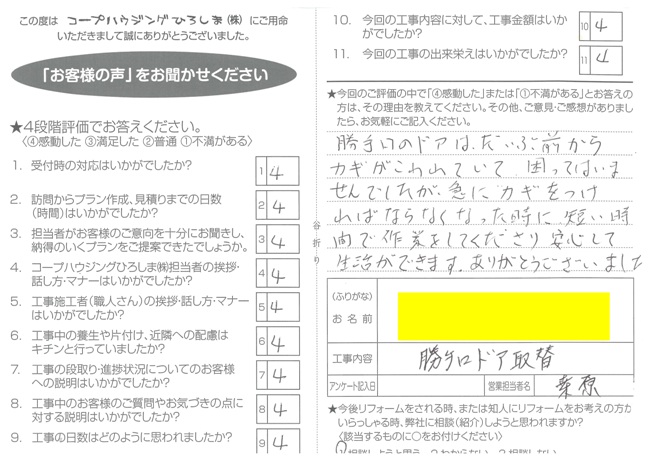 この度は コープハウジングひろしま(株) にご用命
いただきまして誠にありがとうございました。
「お客様の声」をお聞かせください
★4段階評価でお答えください。
〈④感動した ③満足した ②普通 ①不満がある〉
1. 受付時の対応はいかがでしたか?
1 4
2. 訪問からプラン作成、見積りまでの日数
(時間)はいかがでしたか?
2 4
3. 担当者がお客様のご意向を十分にお聞きし、
納得のいくプランをご提案できたでしょうか。
3 4
4. コープハウジングひろしま㈱担当者の挨拶・
話し方・マナーはいかがでしたか?
4 4
5. 工事施工者(職人さん)の挨拶・話し方・マナー
はいかがでしたか?
5 4
6. 工事中の養生や片付け、近隣への配慮は
キチンと行っていましたか?
6 4
7. 工事の段取り・進捗状況についてのお客様
への説明はいかがでしたか?
7 4
8. 工事中のお客様のご質問やお気づきの点に
対する説明はいかがでしたか?
8 4
9. 工事の日数はどのように思われましたか?
9 4
谷折り
10. 今回の工事内容に対して、工事金額はいか
がでしたか?
10 4
11. 今回の工事の出来栄えはいかがでしたか?
11 4
★今回のご評価の中で「④感動した」または「①不満がある」とお答えの
方は、その理由を教えてください。その他、ご意見・ご感想がありまし
たら、お気軽にご記入ください。
勝手口のドアは、だいぶ前から
カギがこわれていて、困ってはいま
せんでしたが、急にカギをつけ
ればならなくなった時に短い時
間で作業をしてくださり安心して
生活ができます。ありがとうございました
(ふりがな)
お名前
工事内容 勝手口ドア取替
アンケート記入日 営業担当者名 栗原
★今後リフォームをされる時、または知人にリフォームをお考えの方が
いらっしゃる時、弊社に相談(紹介)しようと思われますか?
〈該当するものに○をお付けください〉
1.相談しようと思う 2.わからない 3.相談しない